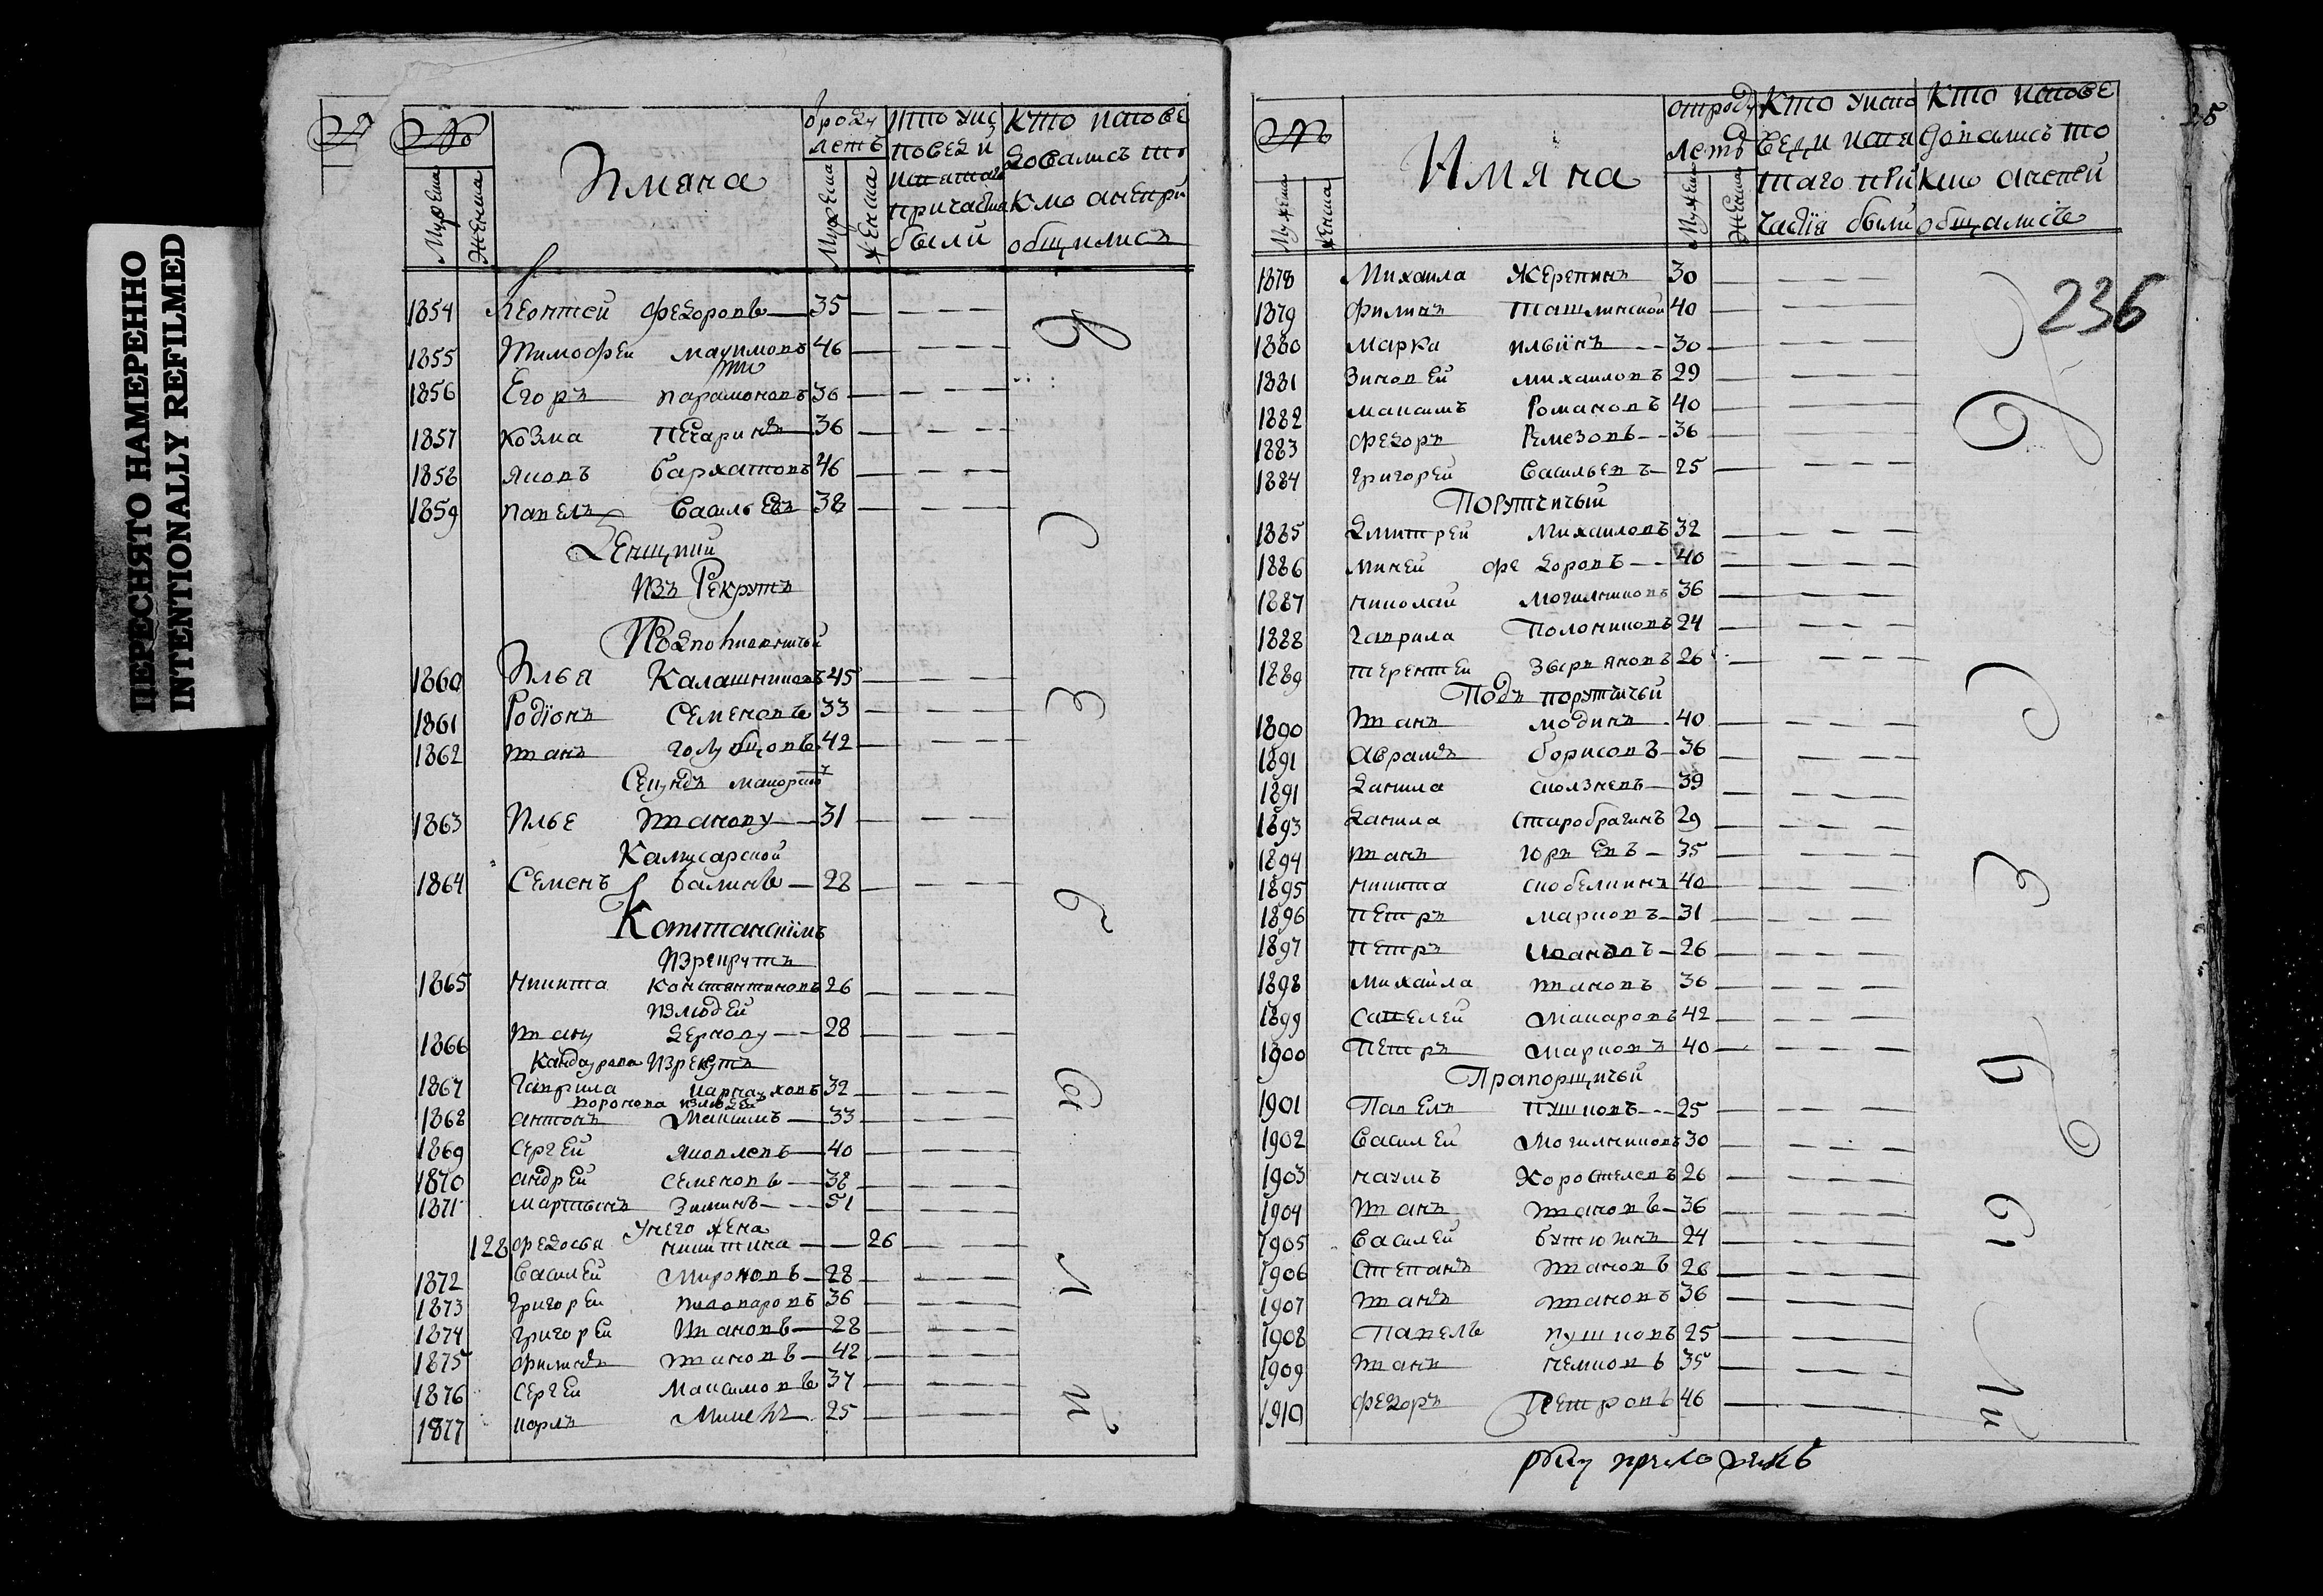 ПЕРЕСНЯТО НАМЕРЕННО
INTENTIONALLY REFILMED
№
Мужеска
Женска
Имяна
летъ
Мужеска
Женска
поведи
причастия
были
кто испове
довались то
кмо а непри
общились
1854 Леонтей Федоровъ 35
1855 Тимофеи 46
1856 Егоръ Парамоновъ 36
1857 Козма Печаринъ 36
1858 Яковъ Бархатовъ 46
1859 Павелъ Васильевъ 38
Денщики
Изъ Рекрутъ
1860 Илья Калашниковъ 45
1861 Родїонъ Семеновъ 33
1862 Иванъ Голубцовъ 42
Секундъ маиорскъ
1863 Илье Иванову 31
Камисарской
1864 Семенъ Балинъ 28
Капитанскимъ
Изрекрутъ
1865 Никита Константиновъ 26
Излюдей
1866 Ивану Дернову 28
Кандаурова Изрекутъ
1867 Гаврила 32
Воронова излюдей
1868 Антонъ Максимъ 33
1869 Сергей Яковлевъ 40
1870 Андрей Семеновъ 38
1871 Мартынъ Зиминъ 51
Унего жена
128 Федосья Никитина 26
1872 Василей Мироновъ 28
1873 Григореи 36
1874 Григореи Ивановъ 28
1875 Филипъ Ивановъ 42
1876 Сергеи Максимовъ 37
1877 Карлъ 25
В
С
Е
б
ы
л
и
№
Мужеска
женска
Имяна
отроду
летъ
Мужеска
Женска
Кто уиспо
веди исвя
таго при
частїя были
Кто испове
довались то
кмо анепри
общались
236
1878 Михаила Жеребинъ 30
1879 Филипъ Ташлинской 40
1880 Марка Ильинъ 30
1881 Зиновей Михаиловъ 29
1882 Максимъ Романовъ 40
1883 Федоръ Ремезовъ 36
1884 Григорей Васильевъ 25
Порутчичьи
1885 Дмитрей Михаиловъ 32
1886 Миней Федоровъ 40
1887 Николай Могильниковъ 36
1888 Гаврила Половниковъ 24
1889 Терентеи Зыряновъ 26
Подъ порутчичьи
1890 Иванъ Модинъ 40
1891 Аврамъ Борисовъ 36
1891 Данила Сползневъ 39
1893 Данила Старобрагинъ 29
1894 Иванъ Юрьевъ 35
1895 Никита Скобелкинъ 40
1896 Петръ Марковъ 31
1897 Петръ Ивановъ 26
1898 Михаила Ивановъ 36
1899 Савелей Макаровъ 42
1900 Петръ Марковъ 40
Прапорщичьи
1901 Павелъ Пушковъ 25
1902 Василей Могильниковъ 30
1903 Наумъ Хоростелевъ 26
1904 Иванъ Ивановъ 36
1905 Василей Бутюгинъ 24
1906 Степанъ Ивановъ 26
1907 Иванъ Ивановъ 36
1908 Павелъ Пушковъ 25
1909 Иванъ Чемковъ 35
1910 Федоръ Петровъ 46
В
С
Е
б
ы
л
и
руку приложилъ